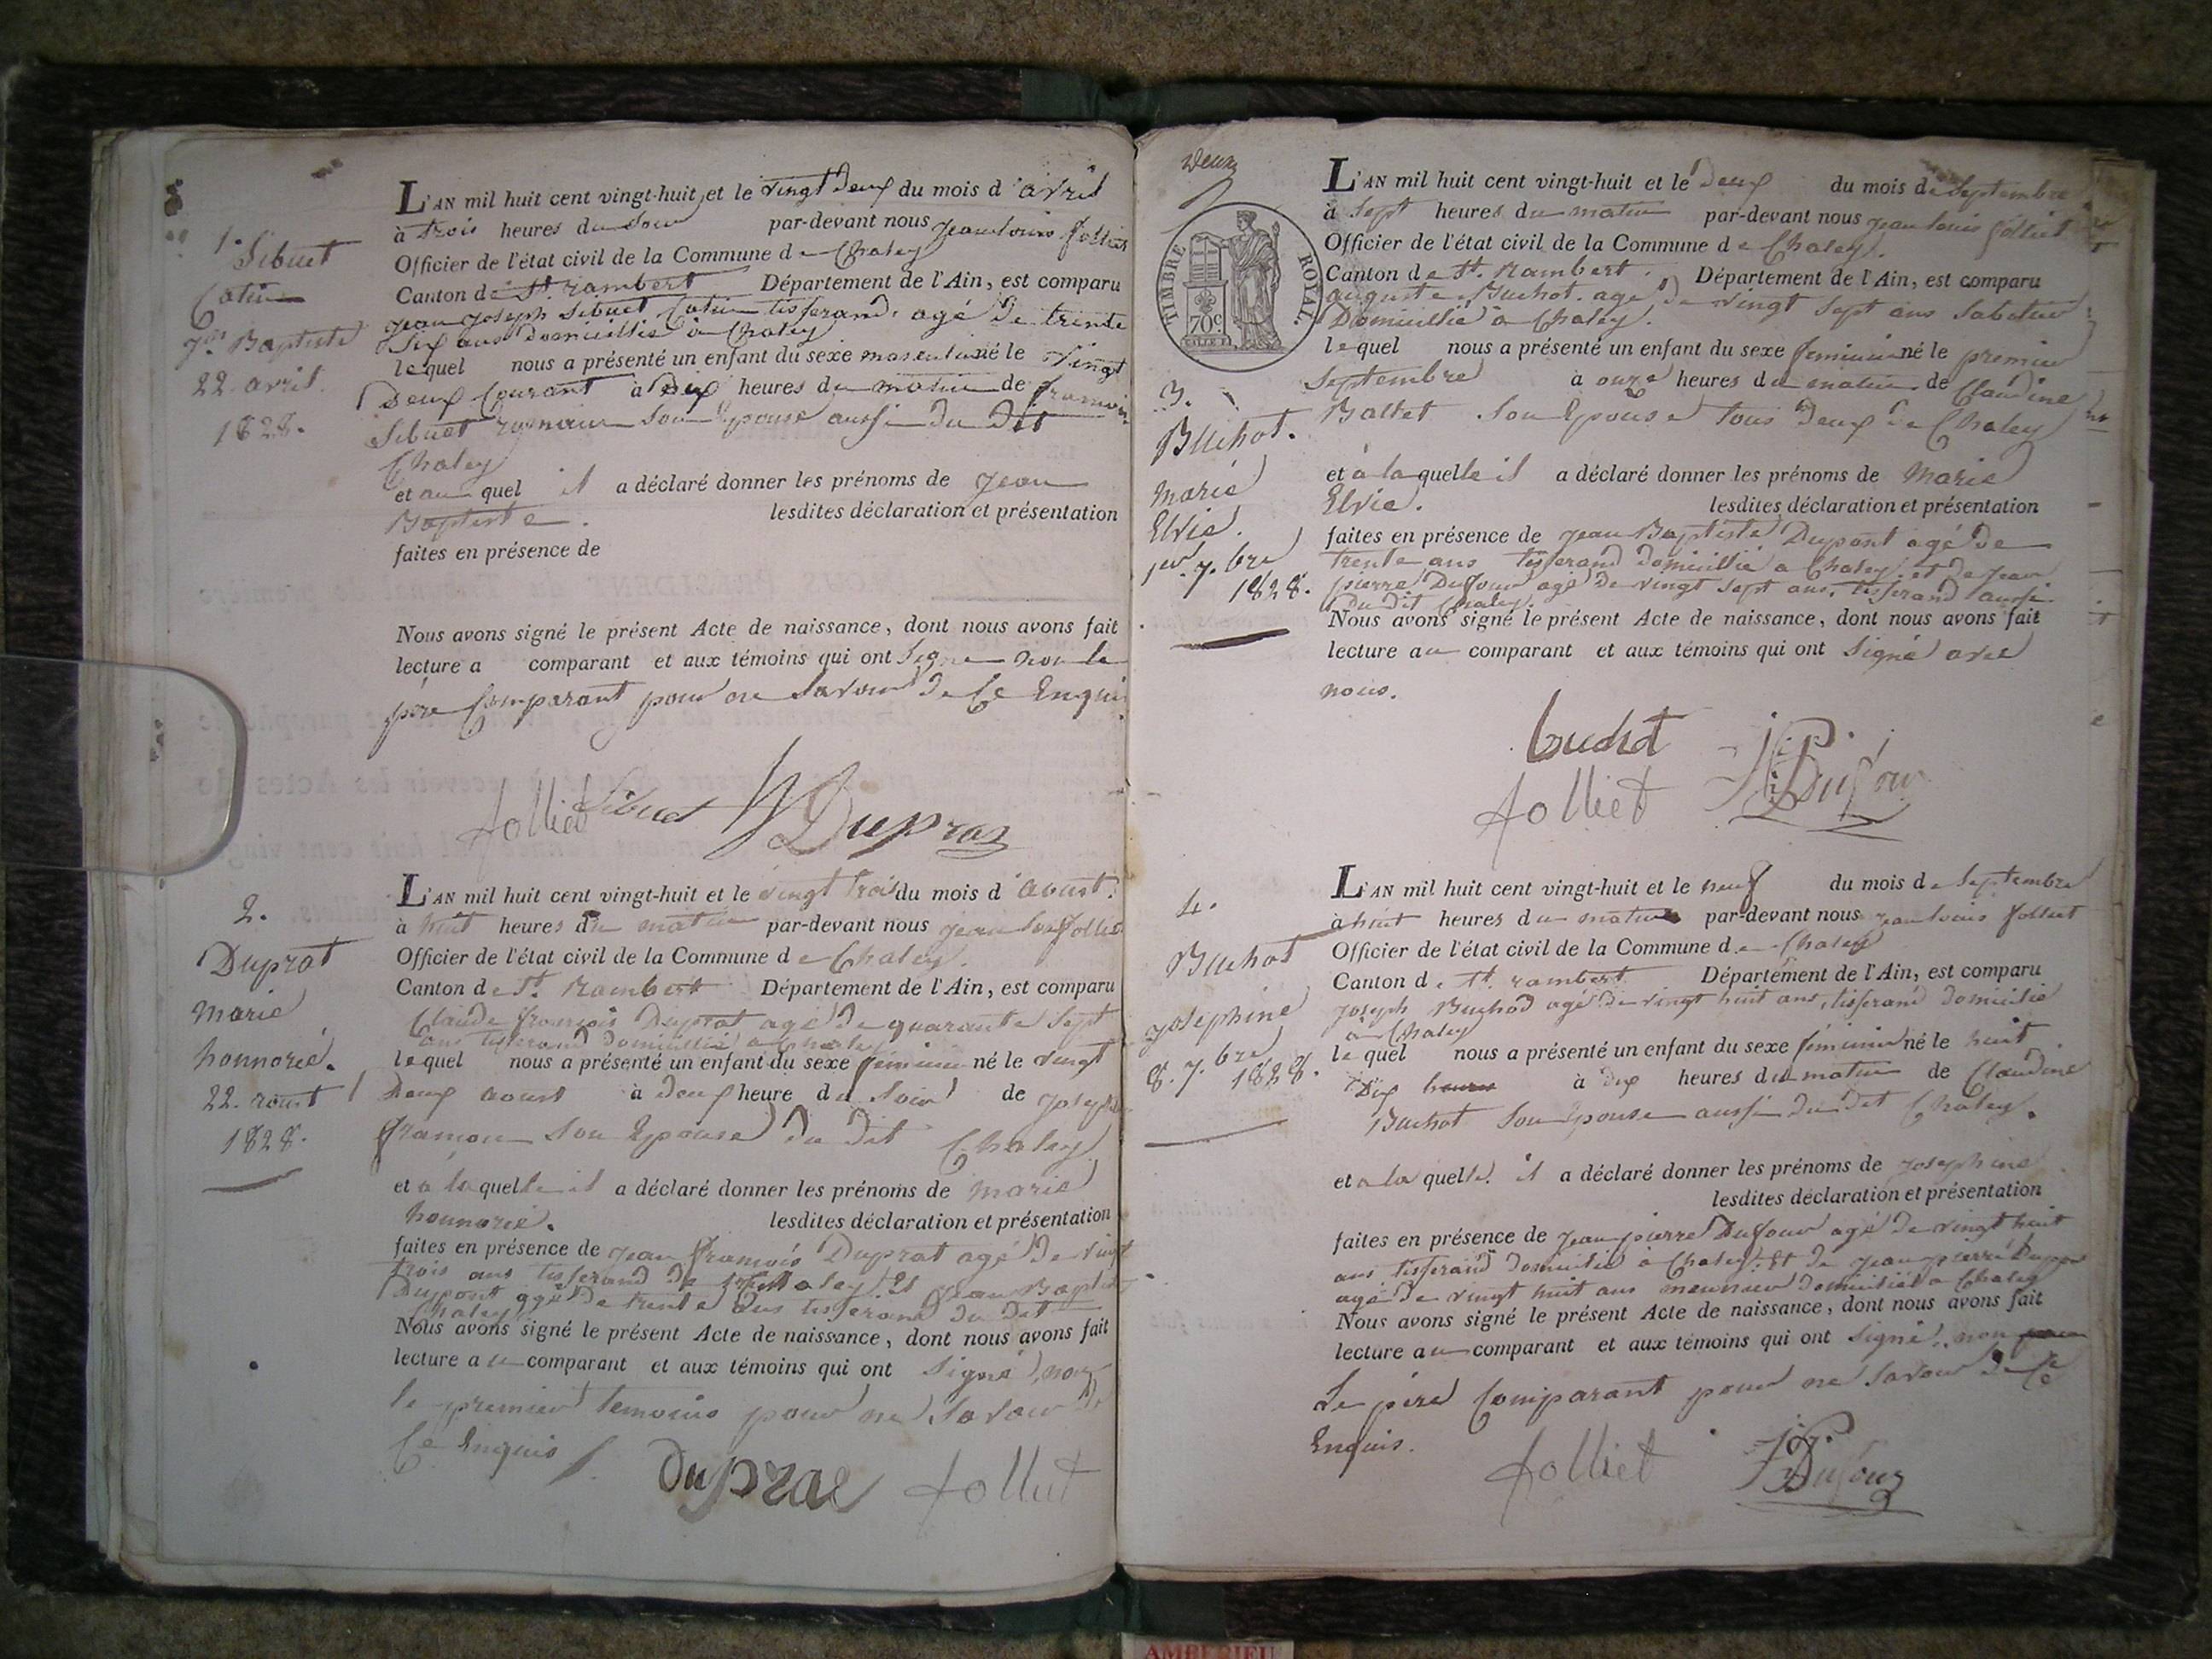 1. Sibuet
Cotin
Jn Baptiste
22. avril.
1828.
L'AN mil huit cent vingt-huit et le vingt Deux du mois d'avril
à trois heures du soir par-devant nous Jean Louis folliet
Officier de l'état civil de la Commune de Chaley
Canton de St. rambert Département de l'Ain, est comparu
Jean Joseph Sibuet Cotin tisserand, agé de trente
Six ans domicillié a Chaley
lequel nous a présenté un enfant du sexe masculin né le Vingt
Deux Courant à heures du matin de
Sibuet son Epouse aussi du Dit
Chaley
et au quel il a déclaré donner les prénoms de Jean
Baptiste. lesdites déclaration et présentation
faites en présence de
Nous avons signé le présent Acte de naissance, dont nous avons fait
lecture a comparant et aux témoins qui ont Signé non le
père Comparant pour ne Savoir de Ce Enquis
folliet Sibuet Dupraz
2.
Duprat
Marie
honnorié.
22. aoust
1828.
L'AN mil huit cent vingt-huit et le vingt trois du mois d'aoust.
à huit heures du matin par-devant nous folliet
Officier de l'état civil de la Commune de Chaley.
Canton de St. Rambert Département de l'Ain, est comparu
Claude françois Duprat agé de quarante Sept
ans tisserand domicillié a Chaley
lequel nous a présenté un enfant du sexe féminin né le vingt
Deux aoust à deux heure du Soir de
son Epouse du Dit Chaley
et a laquelle il a déclaré donner les prénoms de Marie
honnorié. lesdites déclaration et présentation
faites en présence de Jean françois Duprat agé de vingt
trois ans tisserand de Chaley Et Jean Baptiste
Dupont agé de trente ans tisserand du Dit
Chaley
Nous avons signé le présent Acte de naissance, dont nous avons fait
lecture au comparant et aux témoins qui ont Signé, non
le premier temoins pour ne Savoir de
Ce Enquis
Duprat folliet
Deux
TIMBRE ROYAL.
70c
3.
Buchot.
Marie
Elvie.
1er. 7.bre
1828.
L'AN mil huit cent vingt-huit et le Deux du mois de Septembre
à Sept heures du matin par-devant nous Jean Louis folliet
Officier de l'état civil de la Commune de Chaley.
Canton de St. Rambert. Département de l'Ain, est comparu
auguste Buchot. agé de vingt Sept ans Sabotier
Domicillié a Chaley.
lequel nous a présenté un enfant du sexe feminin né le premier
Septembre à onze heures du matin de Claudine
Ballet Son Epouse tous Deux de Chaley
et à la quelle il a déclaré donner les prénoms de Marie
Elvie. lesdites déclaration et présentation
faites en présence de Jean Baptiste Dupont agé de
trente ans tisserand domicillié a Chaley et de Jean
pierre Dufour agé de vingt Sept ans, tisserand aussi
du dit Chaley.
Nous avons signé le présent Acte de naissance, dont nous avons fait
lecture au comparant et aux témoins qui ont Signé avec
nous.
buchot J. P.
folliet Dufour
4.
Buchot
Josephine
8. 7.bre
1828.
L'AN mil huit cent vingt-huit et le neuf du mois de Septembre
à huit heures du matin par-devant nous Jean Louis folliet
Officier de l'état civil de la Commune de Chaley
Canton de St. rambert Département de l'Ain, est comparu
Joseph Buchod agé de vingt huit ans, tisserand domicilié
a Chaley
lequel nous a présenté un enfant du sexe féminin né le huit
à heures du matin de Claudine
Buchot Son Epouse aussi du dit Chaley.
et a la quelle. il a déclaré donner les prénoms de Josephine
lesdites déclaration et présentation
faites en présence de Jean pierre Dufour agé de vingt huit
ans tisserand domicilié a Chaley. Et de Jean pierre
agé de vingt huit ans domicilié a Chaley
Nous avons signé le présent Acte de naissance, dont nous avons fait
lecture au comparant et aux témoins qui ont Signé. non
Le père Comparant pour ne Savoir de Ce
Enquis.
folliet J P Dufour
AMBERIEU